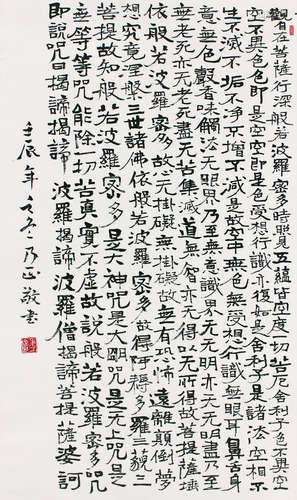 觀自在菩薩行深般若波羅密多時照見五蘊皆空度一切苦厄舍利子色不異空
空不異色色即是空空即是色受想行識亦復如是舍利子是諸法空相不
生不滅不垢不淨不增不減是故空中無色無受想行識無眼耳鼻舌身
意無色聲香味觸法无眼界乃至無意識界无无明亦无无明盡乃至
無老死亦无老死盡无苦集滅道無智亦无得以无所得故菩提薩埵
依般若波羅密多故心无掛礙無掛礙故无有恐怖遠離顛倒夢
想究竟涅槃三世諸佛依般若波羅密多故得阿耨多羅三藐三
菩提故知般若波羅密多是大神咒是大明咒是无上咒是
無等等咒能除一切苦真實不虛故說般若波羅密多咒
即說咒曰揭諦揭諦波羅揭諦波羅僧揭諦菩提薩婆訶
壬辰年冬乃正敬書